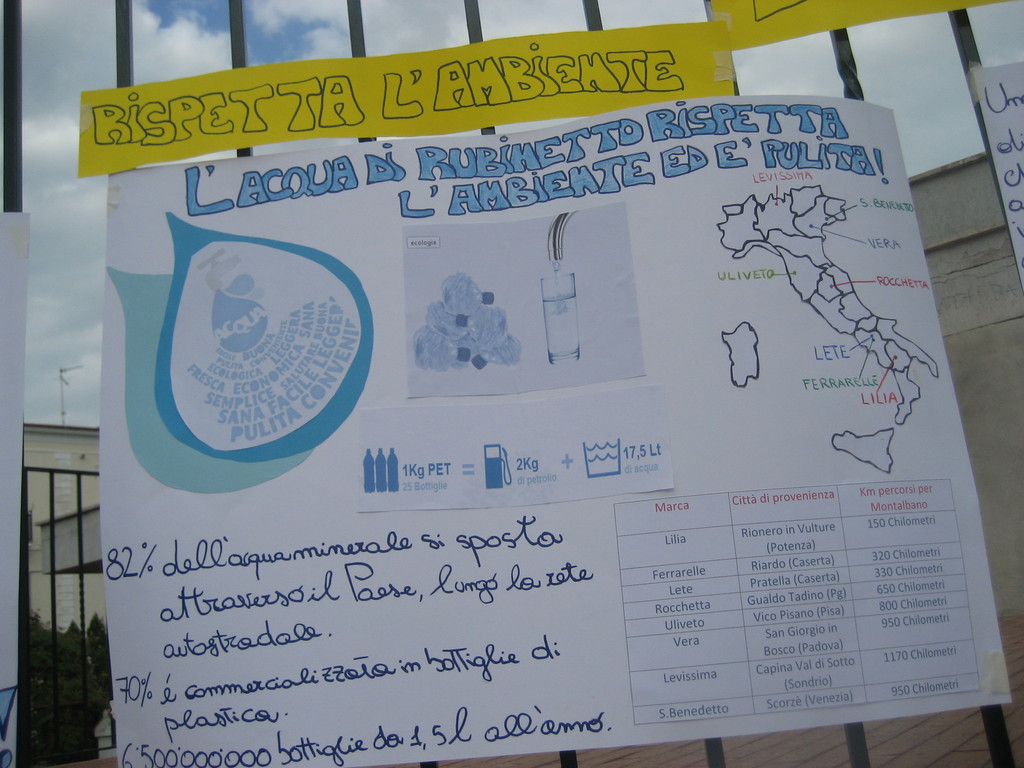 RISPETTA L'AMBIENTE
L'ACQUA DI RUBINETTO RISPETTA
L'AMBIENTE ED E' PULITA!
H2O
ACQUA
BUONA
PULITA
ECOLOGICA LEGGERA
FRESCA ECONOMICA SANA
SEMPLICE SALUTARE BUONA
SANA FACILE LEGGERA
PULITA CONVENIENTE
ecologia
LEVISSIMA
S. BENEDETTO
VERA
ULIVETO
ROCCHETTA
LETE
FERRARELLE
LILIA
1Kg PET
25 Bottiglie
=
2Kg
di petrolio
+
17,5 Lt
di acqua
82% dell'acqua minerale si sposta
attraverso il Paese, lungo la rete
autostradale.
70% é commercializzata in bottiglie di
plastica.
6'500'000'000 bottiglie da 1,5 l all'anno.
Marca Città di provenienza Km percorsi per
Montalbano
Lilia Rionero in Vulture
(Potenza) 150 Chilometri
Ferrarelle Riardo (Caserta) 320 Chilometri
Lete Pratella (Caserta) 330 Chilometri
Rocchetta Gualdo Tadino (Pg) 650 Chilometri
Uliveto Vico Pisano (Pisa) 800 Chilometri
Vera San Giorgio in
Bosco (Padova) 950 Chilometri
Levissima Capina Val di Sotto
(Sondrio) 1170 Chilometri
S.Benedetto Scorzè (Venezia) 950 Chilometri